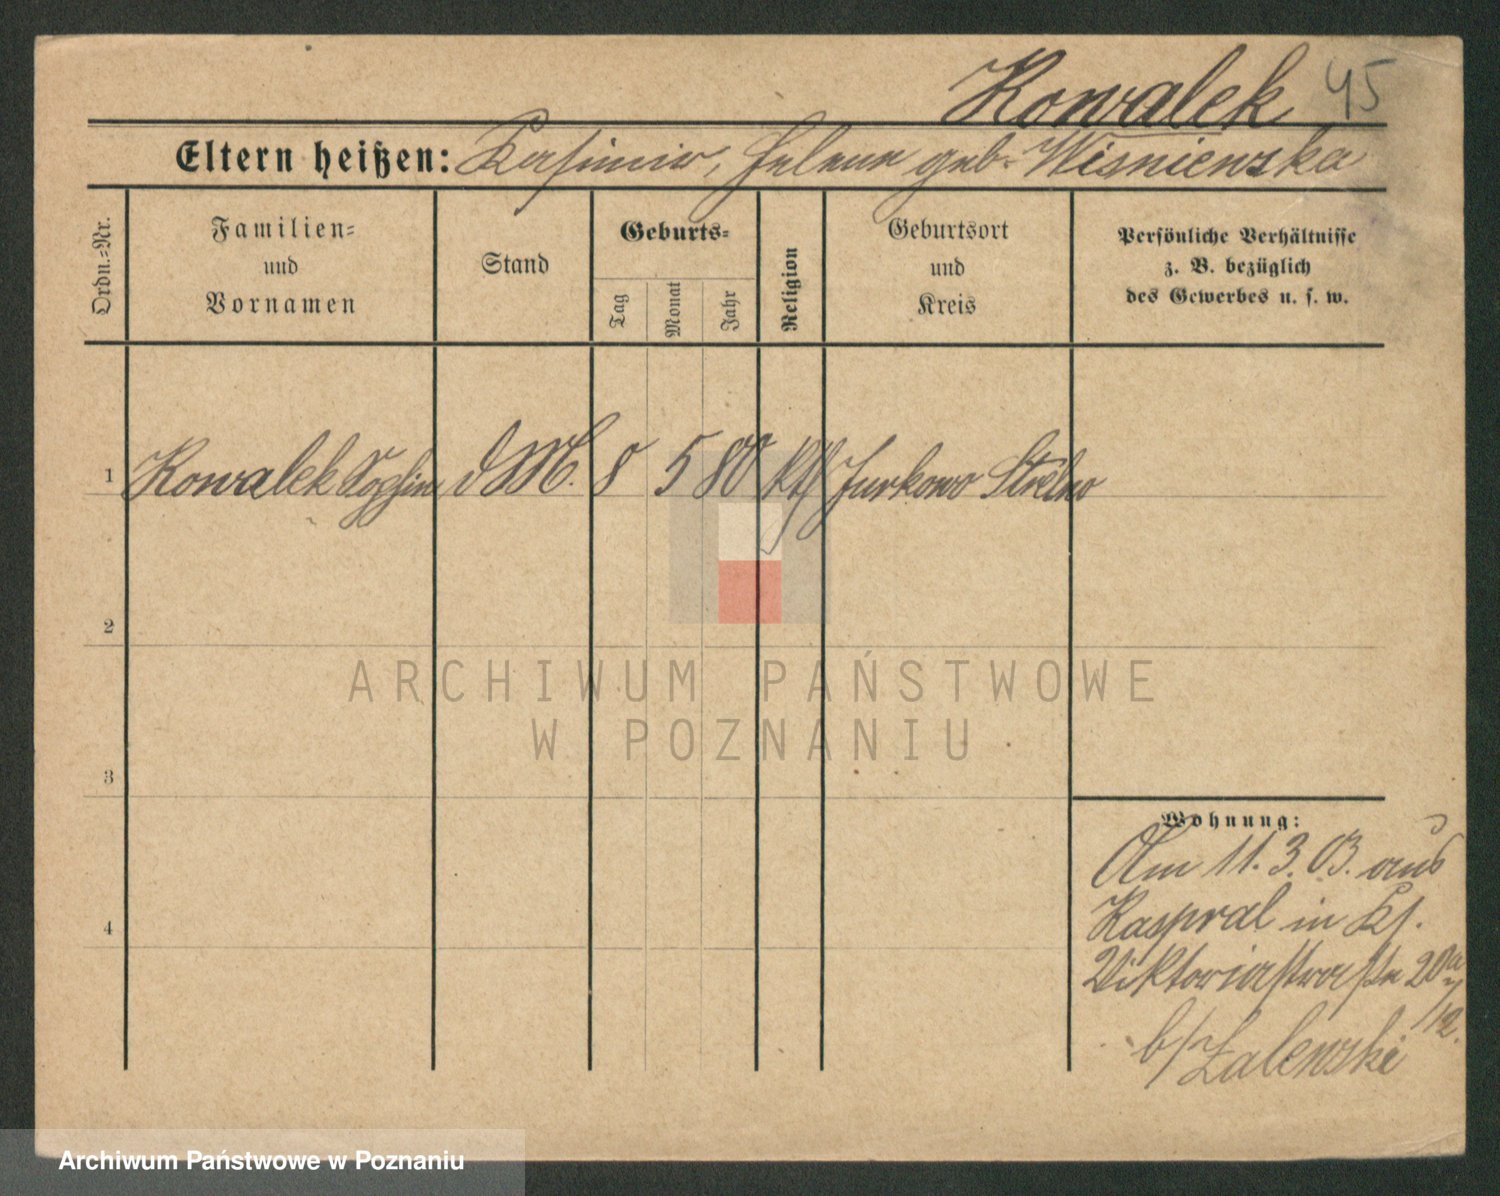 Kowalek 45
Eltern heißen: Kasimir, Helena geb. Wisniewska
Ordn.=Nr.
Familien= und Vornamen
Stand
Geburts=
Tag
Monat
Jahr
Religion
Geburtsort und Kreis
Persönliche Verhältnisse
z. B. bezüglich
des Gewerbes u. s. w.
1 Kowalek Sophie d M. 8 5 80 kth Jurkowo Strelno
2
3
4
Wohnung:
Am 11.3.03. aus
Kaspral in
Viktoriastraße 20a
b/ Zalewski
ARCHIWUM PAŃSTWOWE
W POZNANIU
Archiwum Państwowe w Poznaniu